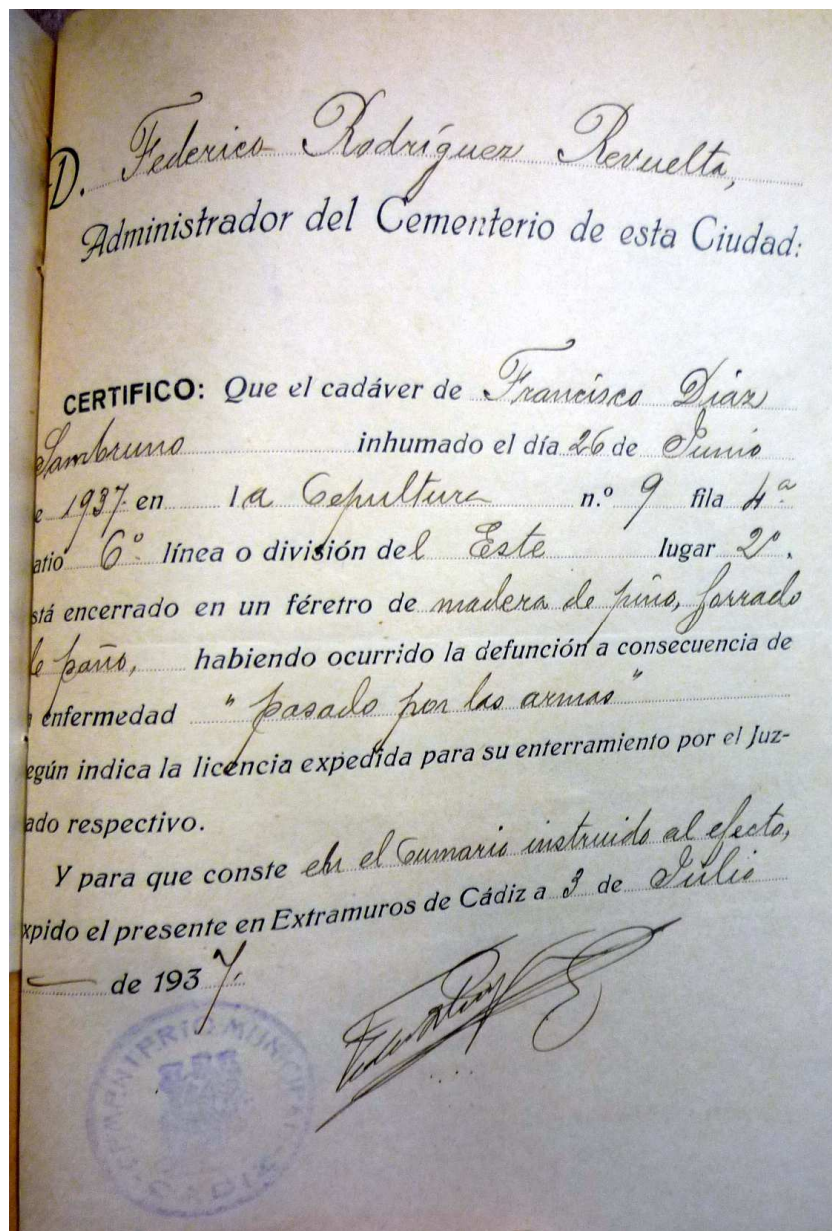 D. Federico Rodríguez Revuelta,
Administrador del Cementerio de esta Ciudad:
CERTIFICO: Que el cadáver de Francisco Díaz
Sambruno inhumado el día 26 de Junio
e 1937. en la Cepultura n.º 9 fila 4ª
atio 6º línea o división del Este lugar 2º.
stá encerrado en un féretro de madera de pino, forrado
de paño, habiendo ocurrido la defunción a consecuencia de
enfermedad "pasado por las armas"
egún indica la licencia expedida para su enterramiento por el Juz-
ado respectivo.
Y para que conste en el Sumario instruido al efecto,
xpido el presente en Extramuros de Cádiz a 3 de Julio
de 1937.
CEMENTERIO MUNICIPAL
CADIZ